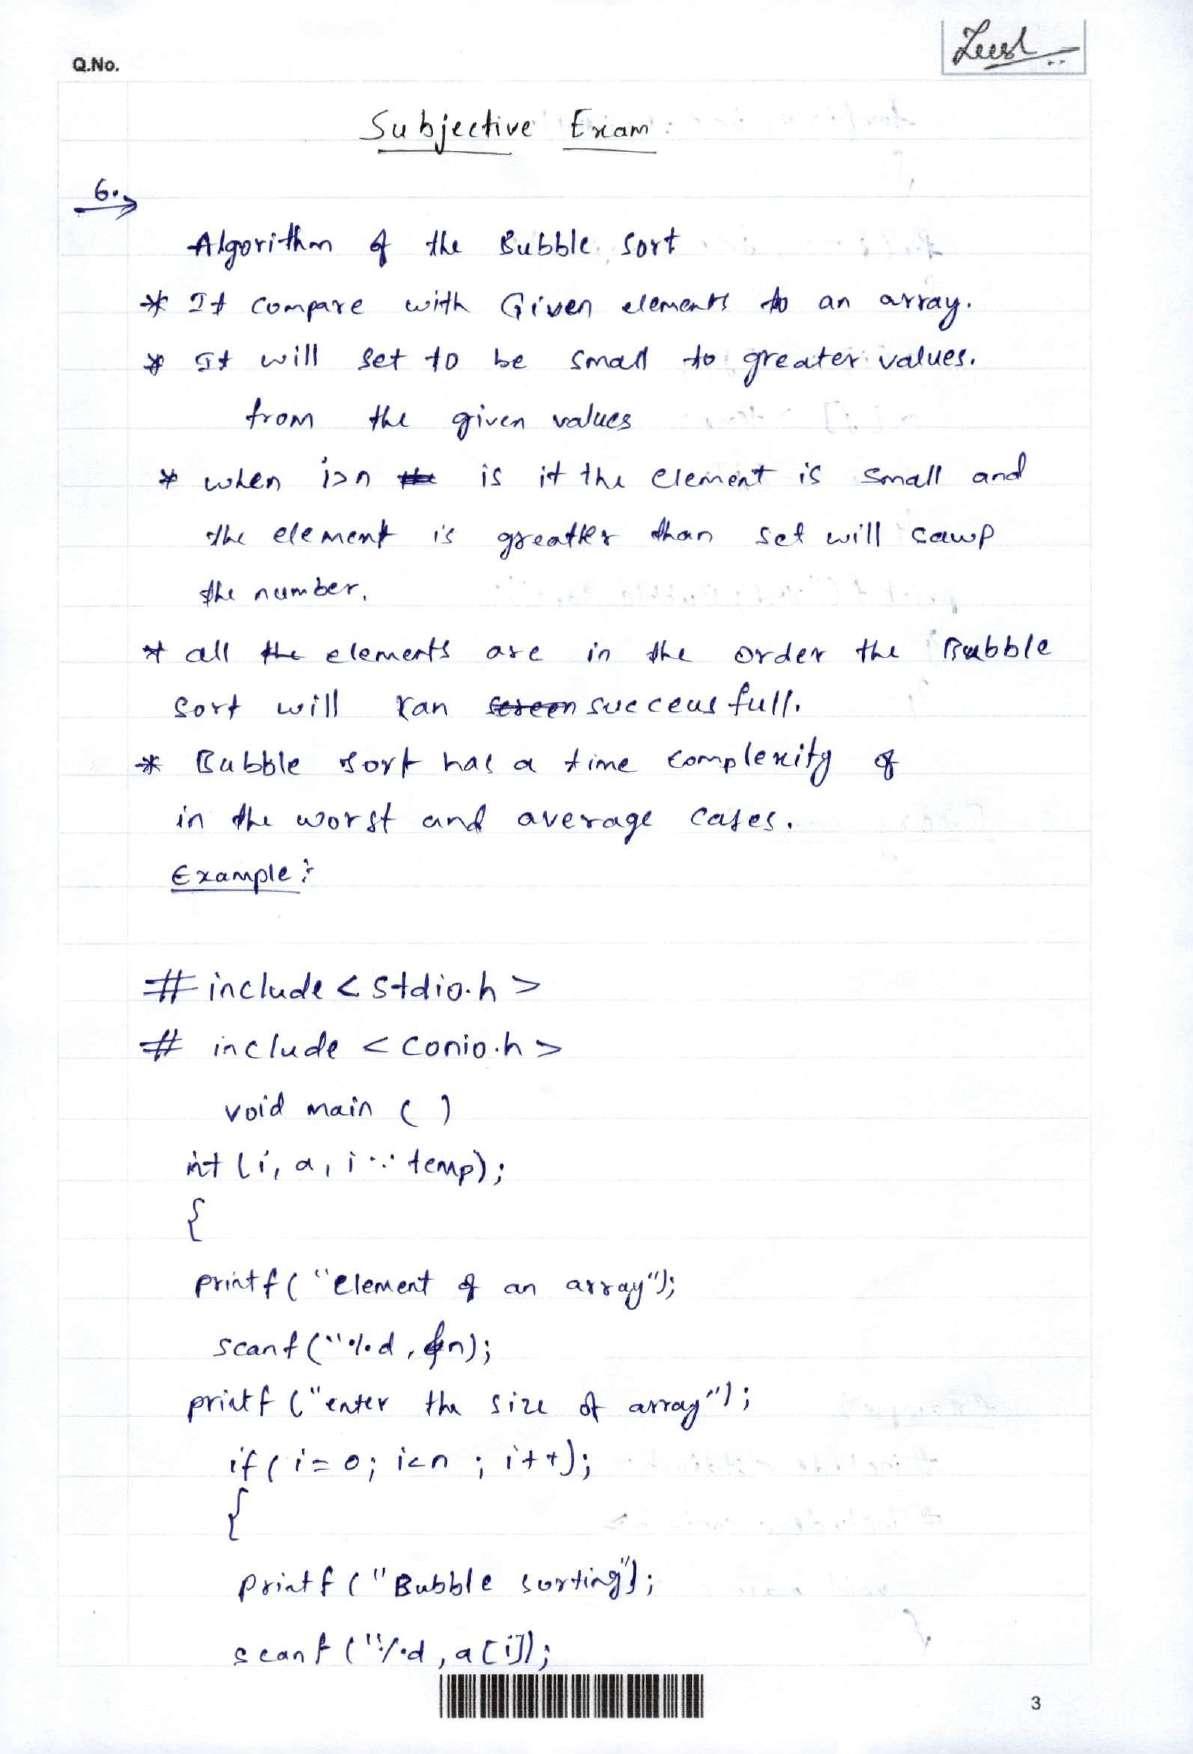 Q.No.
Subjective Exam
6.
Algorithm of the Bubble Sort
* It compare with Given elements to an array.
* It will set to be small to greater values.
from the given values
* when i>n the is it the element is small and
the element is greatter than set will cawp
the number.
* all the elements are in the order the Bubble
Sort will ran screen succeusfull.
* Bubble sort has a time complexity of
in the worst and average cases.
Example:
# include < stdio.h >
# include < conio.h >
void main ( )
int (i, a, i .. temp);
{
printf ( "element of an array");
scanf ("%d , &n);
printf ("enter the size of array");
if ( i = 0; i<n ; i++);
{
printf ("Bubble sorting");
scanf ("%d , a[i]);
3